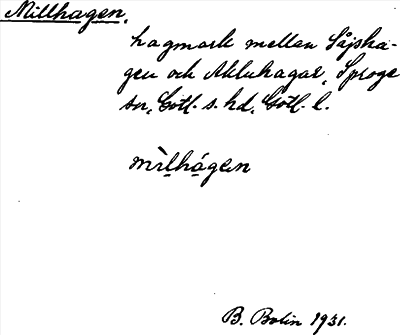 Millhagen,
hagmark mellan Såjsha-
gen och Akluhagar, Sproge
sn, Gotl. s. hd, Gotl. l.
mìlhágen
B. Bolin 1931.